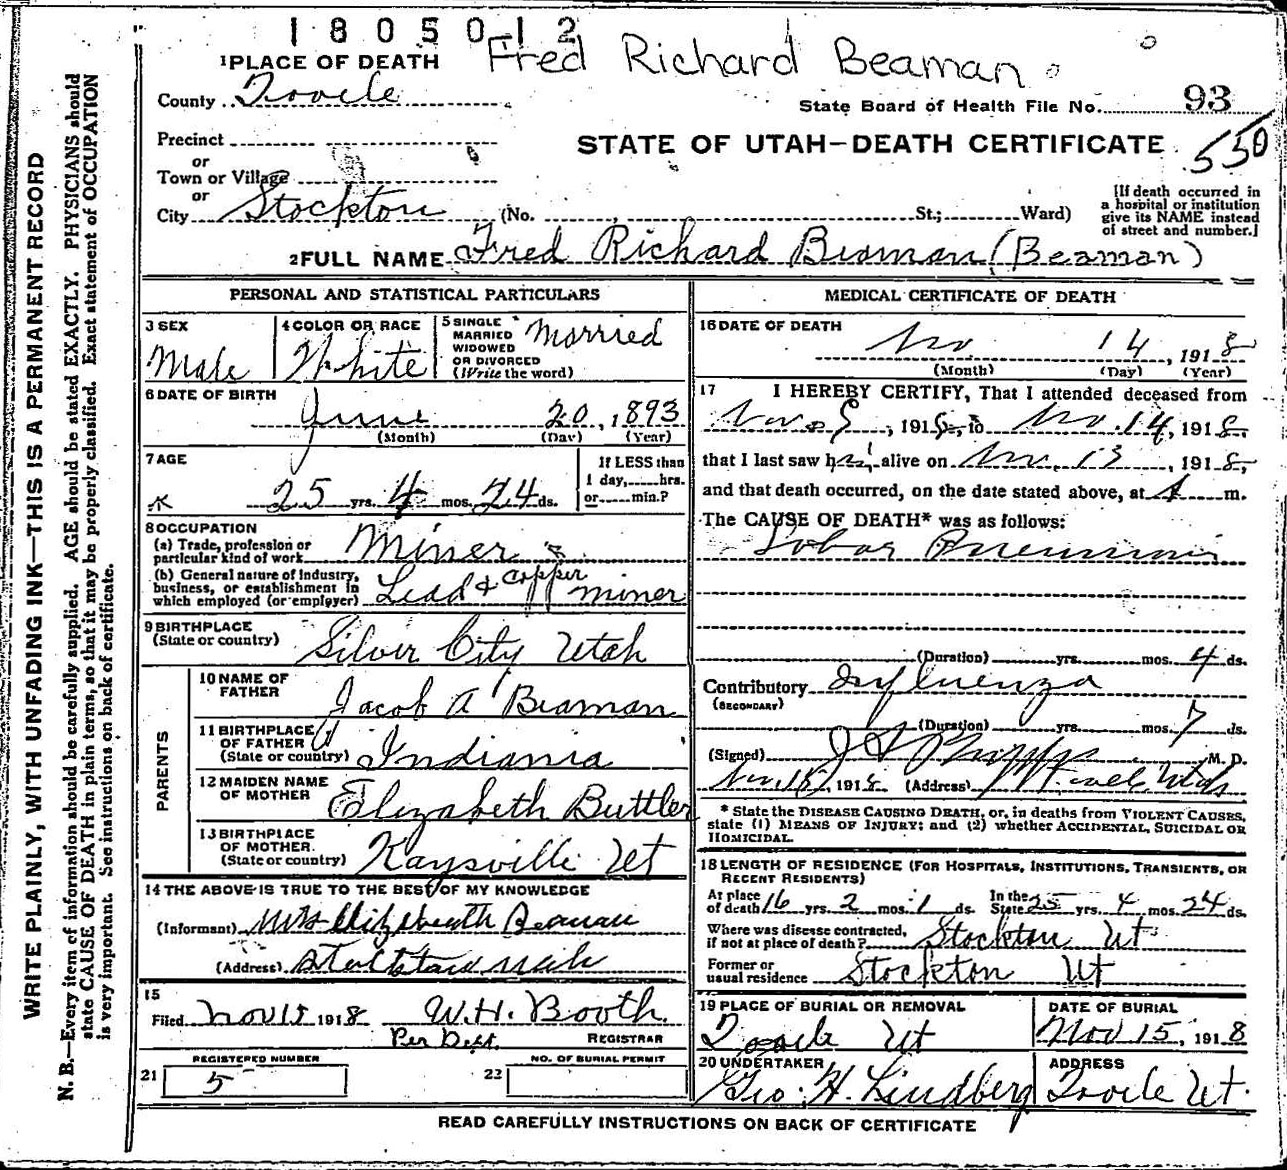 1805012
Fred Richard Beaman
1 PLACE OF DEATH
County Tooele
State Board of Health File No. 93
Precinct
STATE OF UTAH—DEATH CERTIFICATE
550
or
Town or Village
or
City Stockton (No. St.; Ward)
[If death occurred in
a hospital or institution
give its NAME instead
of street and number.]
2 FULL NAME Fred Richard Beaman (Beaman)
PERSONAL AND STATISTICAL PARTICULARS
3 SEX
Male
4 COLOR OR RACE
White
5 SINGLE
MARRIED
WIDOWED
OR DIVORCED
(Write the word)
Married
6 DATE OF BIRTH
June 20, 1893
(Month) (Day) (Year)
7 AGE
25 yrs. 4 mos. 24 ds.
If LESS than
1 day, hrs.
or min.?
8 OCCUPATION
(a) Trade, profession or
particular kind of work Miner
(b) General nature of Industry,
business, or establishment in
which employed (or employer) Lead & Copper miner
9 BIRTHPLACE
(State or country) Silver City Utah
PARENTS
10 NAME OF
FATHER Jacob A Beaman
11 BIRTHPLACE
OF FATHER
(State or country) Indiania
12 MAIDEN NAME
OF MOTHER Elizabeth Buttler
13 BIRTHPLACE
OF MOTHER.
(State or country) Kaysville Ut
14 THE ABOVE IS TRUE TO THE BEST OF MY KNOWLEDGE
(Informant) Mrs Elizabeath Beaman
(Address) Stockton Utah
15
Filed Nov 15 1918 W.H. Booth.
Per Dept. REGISTRAR
REGISTERED NUMBER
21 5
NO. OF BURIAL PERMIT
22
MEDICAL CERTIFICATE OF DEATH
16 DATE OF DEATH
Nov 14, 1918
(Month) (Day) (Year)
17 I HEREBY CERTIFY, That I attended deceased from
Nov. 8, 1918, to Nov. 14, 1918,
that I last saw him alive on Nov. 13, 1918,
and that death occurred, on the date stated above, at m.
The CAUSE OF DEATH* was as follows:
Lobar Pneumonia
(Duration) yrs. mos. 4 ds.
Contributory Influenza
(SECONDARY)
(Duration) yrs. mos. 7 ds.
(Signed) Phipps M. D.
Nov. 15, 1918 (Address)
* State the DISEASE CAUSING DEATH, or, in deaths from VIOLENT CAUSES,
state (1) MEANS OF INJURY; and (2) whether ACCIDENTAL, SUICIDAL OR
HOMICIDAL.
18 LENGTH OF RESIDENCE (FOR HOSPITALS, INSTITUTIONS, TRANSIENTS, OR
RECENT RESIDENTS)
At place
of death 16 yrs. 2 mos. 1 ds.
In the
State 25 yrs. 4 mos. 24 ds.
Where was disease contracted,
if not at place of death? Stockton Ut
Former or
usual residence Stockton Ut
19 PLACE OF BURIAL OR REMOVAL
Tooele Ut
DATE OF BURIAL
Nov 15, 1918
20 UNDERTAKER
Geo. H. Lindberg
ADDRESS
Tooele Ut.
READ CAREFULLY INSTRUCTIONS ON BACK OF CERTIFICATE
WRITE PLAINLY, WITH UNFADING INK—THIS IS A PERMANENT RECORD
N. B.—Every item of information should be carefully supplied. AGE should be stated EXACTLY. PHYSICIANS should
state CAUSE OF DEATH in plain terms, so that it may be properly classified. Exact statement of OCCUPATION
is very important. See instructions on back of certificate.